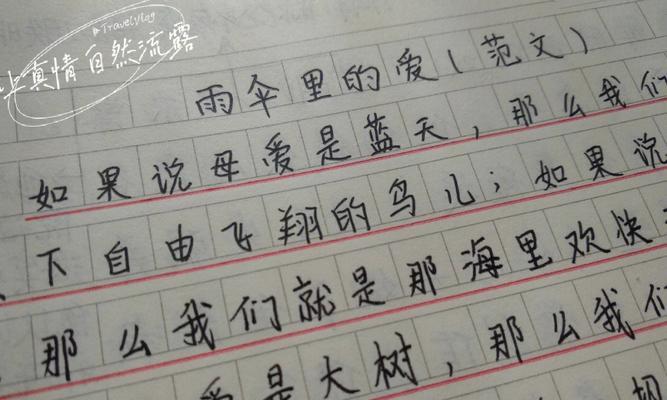 TravelVlog
真情自然流露
雨伞里的爱(范文)
如果说母爱是蓝天,那么我们
下自由飞翔的鸟儿;如果说
那么我们就是那海里欢快
是大树,那么我们